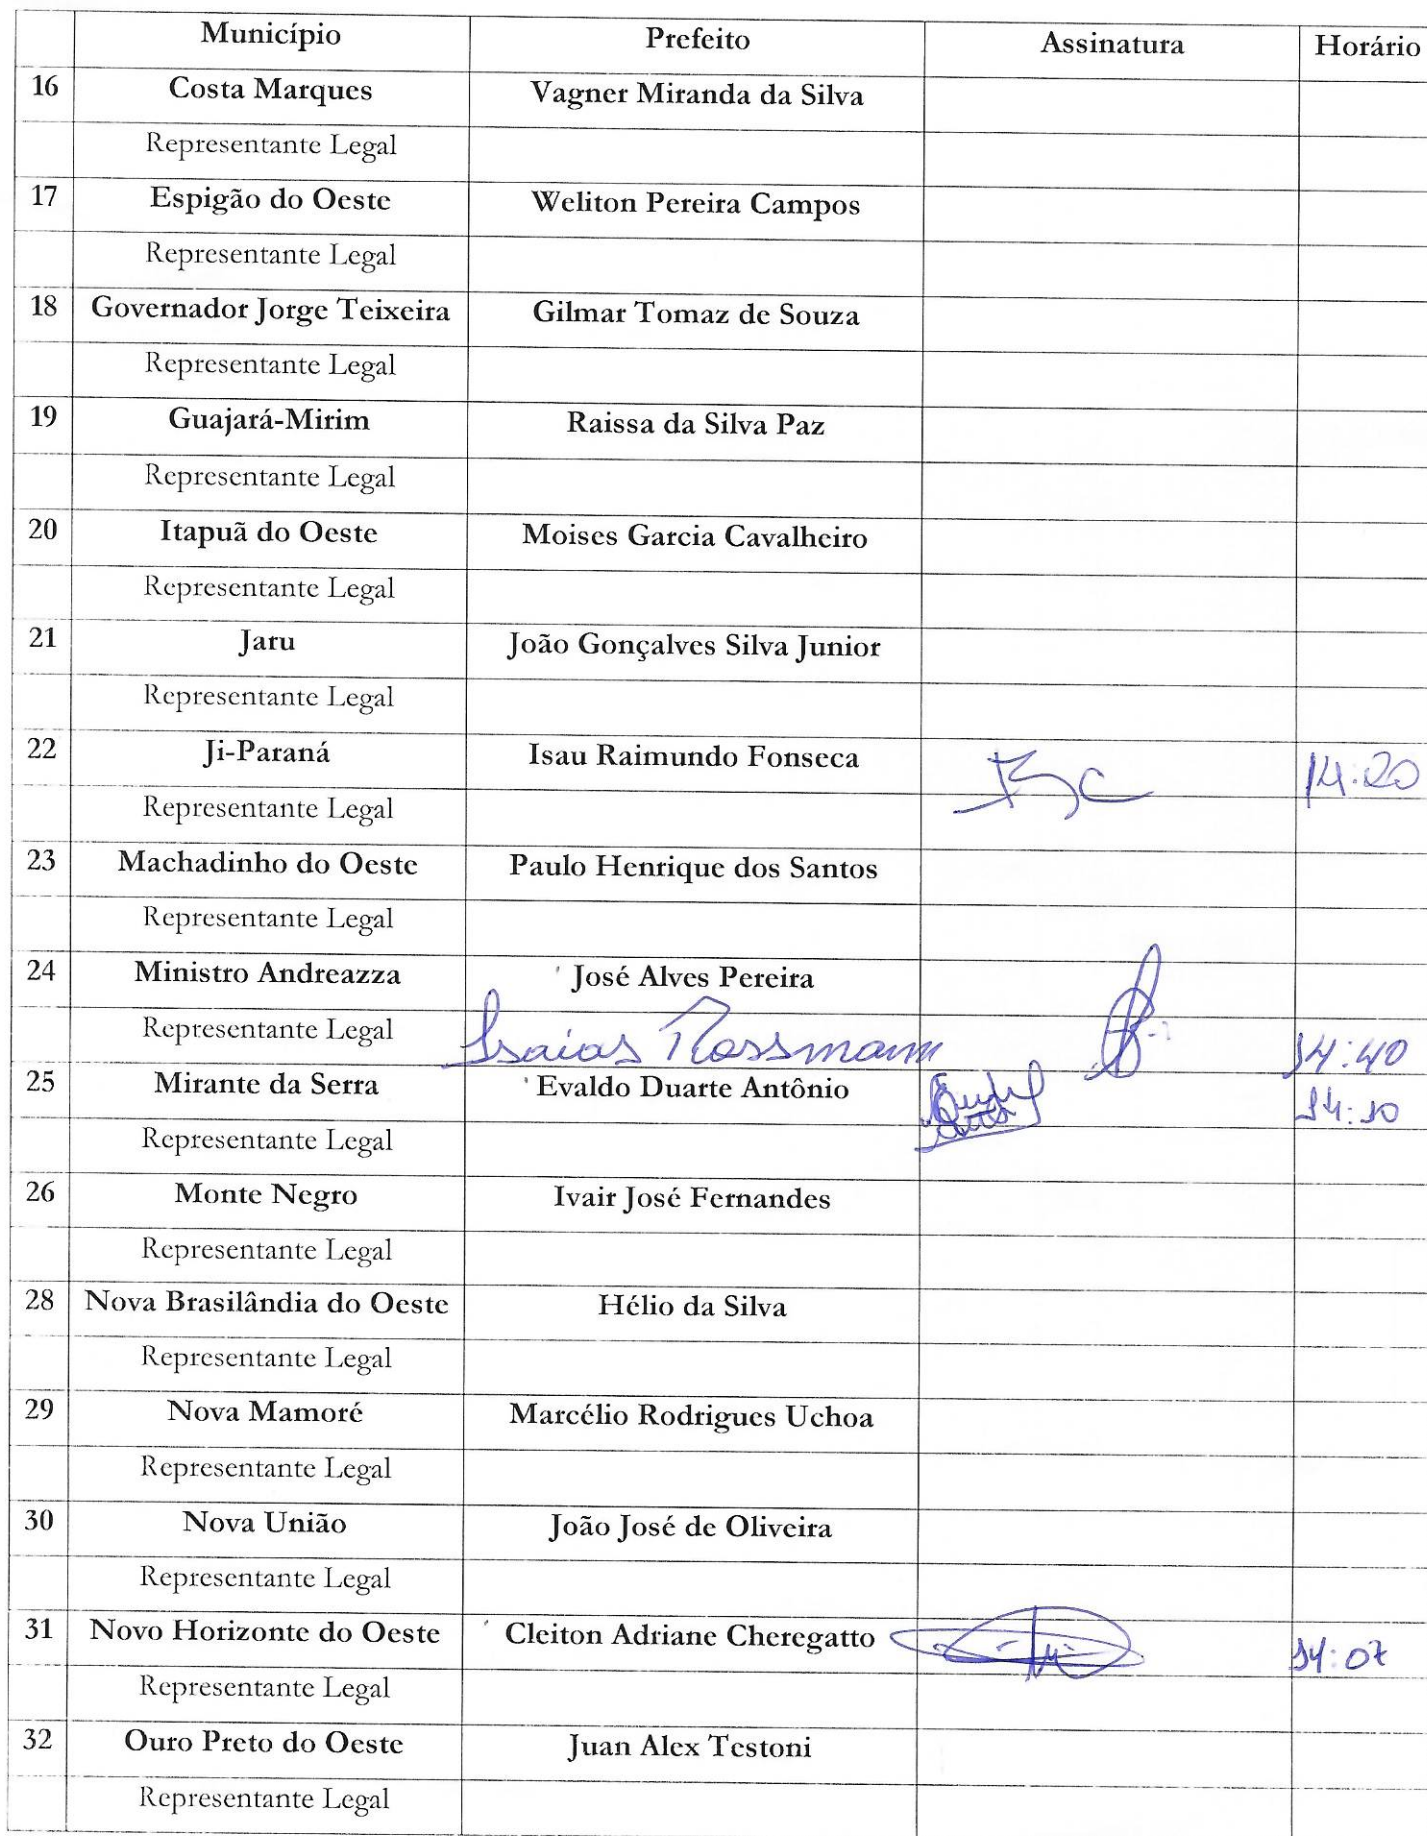 Município Prefeito Assinatura Horário
16 Costa Marques Vagner Miranda da Silva
Representante Legal
17 Espigão do Oeste Weliton Pereira Campos
Representante Legal
18 Governador Jorge Teixeira Gilmar Tomaz de Souza
Representante Legal
19 Guajará-Mirim Raissa da Silva Paz
Representante Legal
20 Itapuã do Oeste Moises Garcia Cavalheiro
Representante Legal
21 Jaru João Gonçalves Silva Junior
Representante Legal
22 Ji-Paraná Isau Raimundo Fonseca 14:20
Representante Legal
23 Machadinho do Oeste Paulo Henrique dos Santos
Representante Legal
24 Ministro Andreazza José Alves Pereira
Representante Legal Isaias Rossmann 14:40
25 Mirante da Serra Evaldo Duarte Antônio 14:10
Representante Legal
26 Monte Negro Ivair José Fernandes
Representante Legal
28 Nova Brasilândia do Oeste Hélio da Silva
Representante Legal
29 Nova Mamoré Marcélio Rodrigues Uchoa
Representante Legal
30 Nova União João José de Oliveira
Representante Legal
31 Novo Horizonte do Oeste Cleiton Adriane Cheregatto 14:07
Representante Legal
32 Ouro Preto do Oeste Juan Alex Testoni
Representante Legal